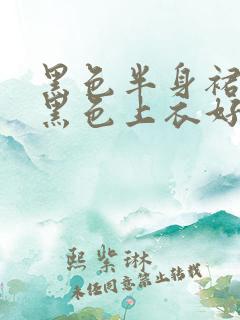 黑色半身裙
黑色上衣好
熙紫琳
未经同意禁止转载